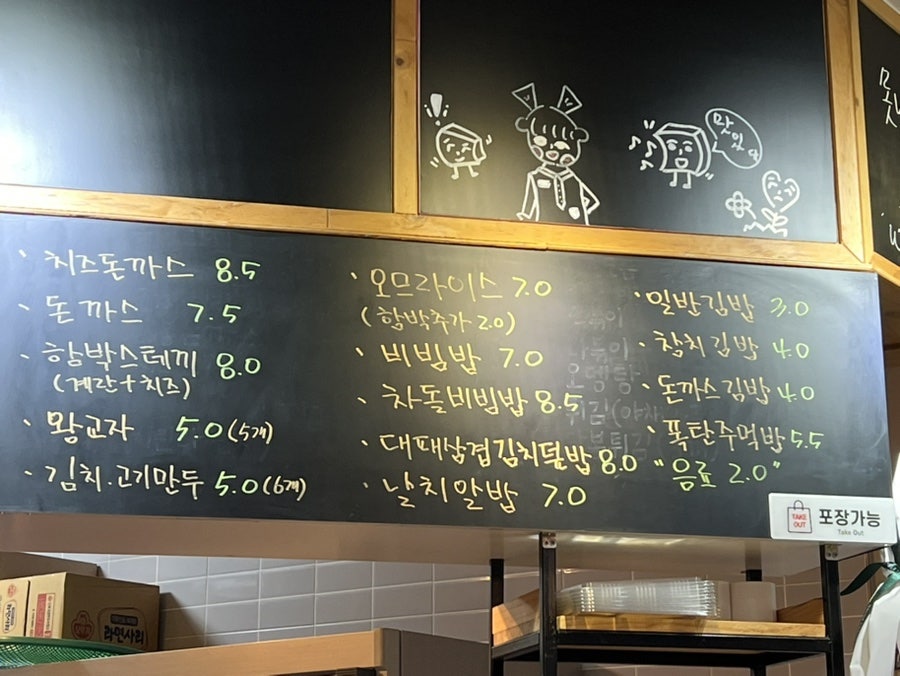 맛있다
· 치즈돈까스 8.5
· 돈까스 7.5
· 함박스테끼 8.0
(계란+치즈)
· 왕교자 5.0(5개)
· 김치.고기만두 5.0(6개)
· 오므라이스 7.0
(함박추가 2.0)
· 비빔밥 7.0
· 차돌비빔밥 8.5
· 대패삼겹김치덮밥 8.0
· 날치알밥 7.0
· 일반김밥 3.0
· 참치김밥 4.0
· 돈까스김밥 4.0
· 폭탄주먹밥 5.5
"음료 2.0"
TAKE OUT
포장가능
Take Out
라면사리